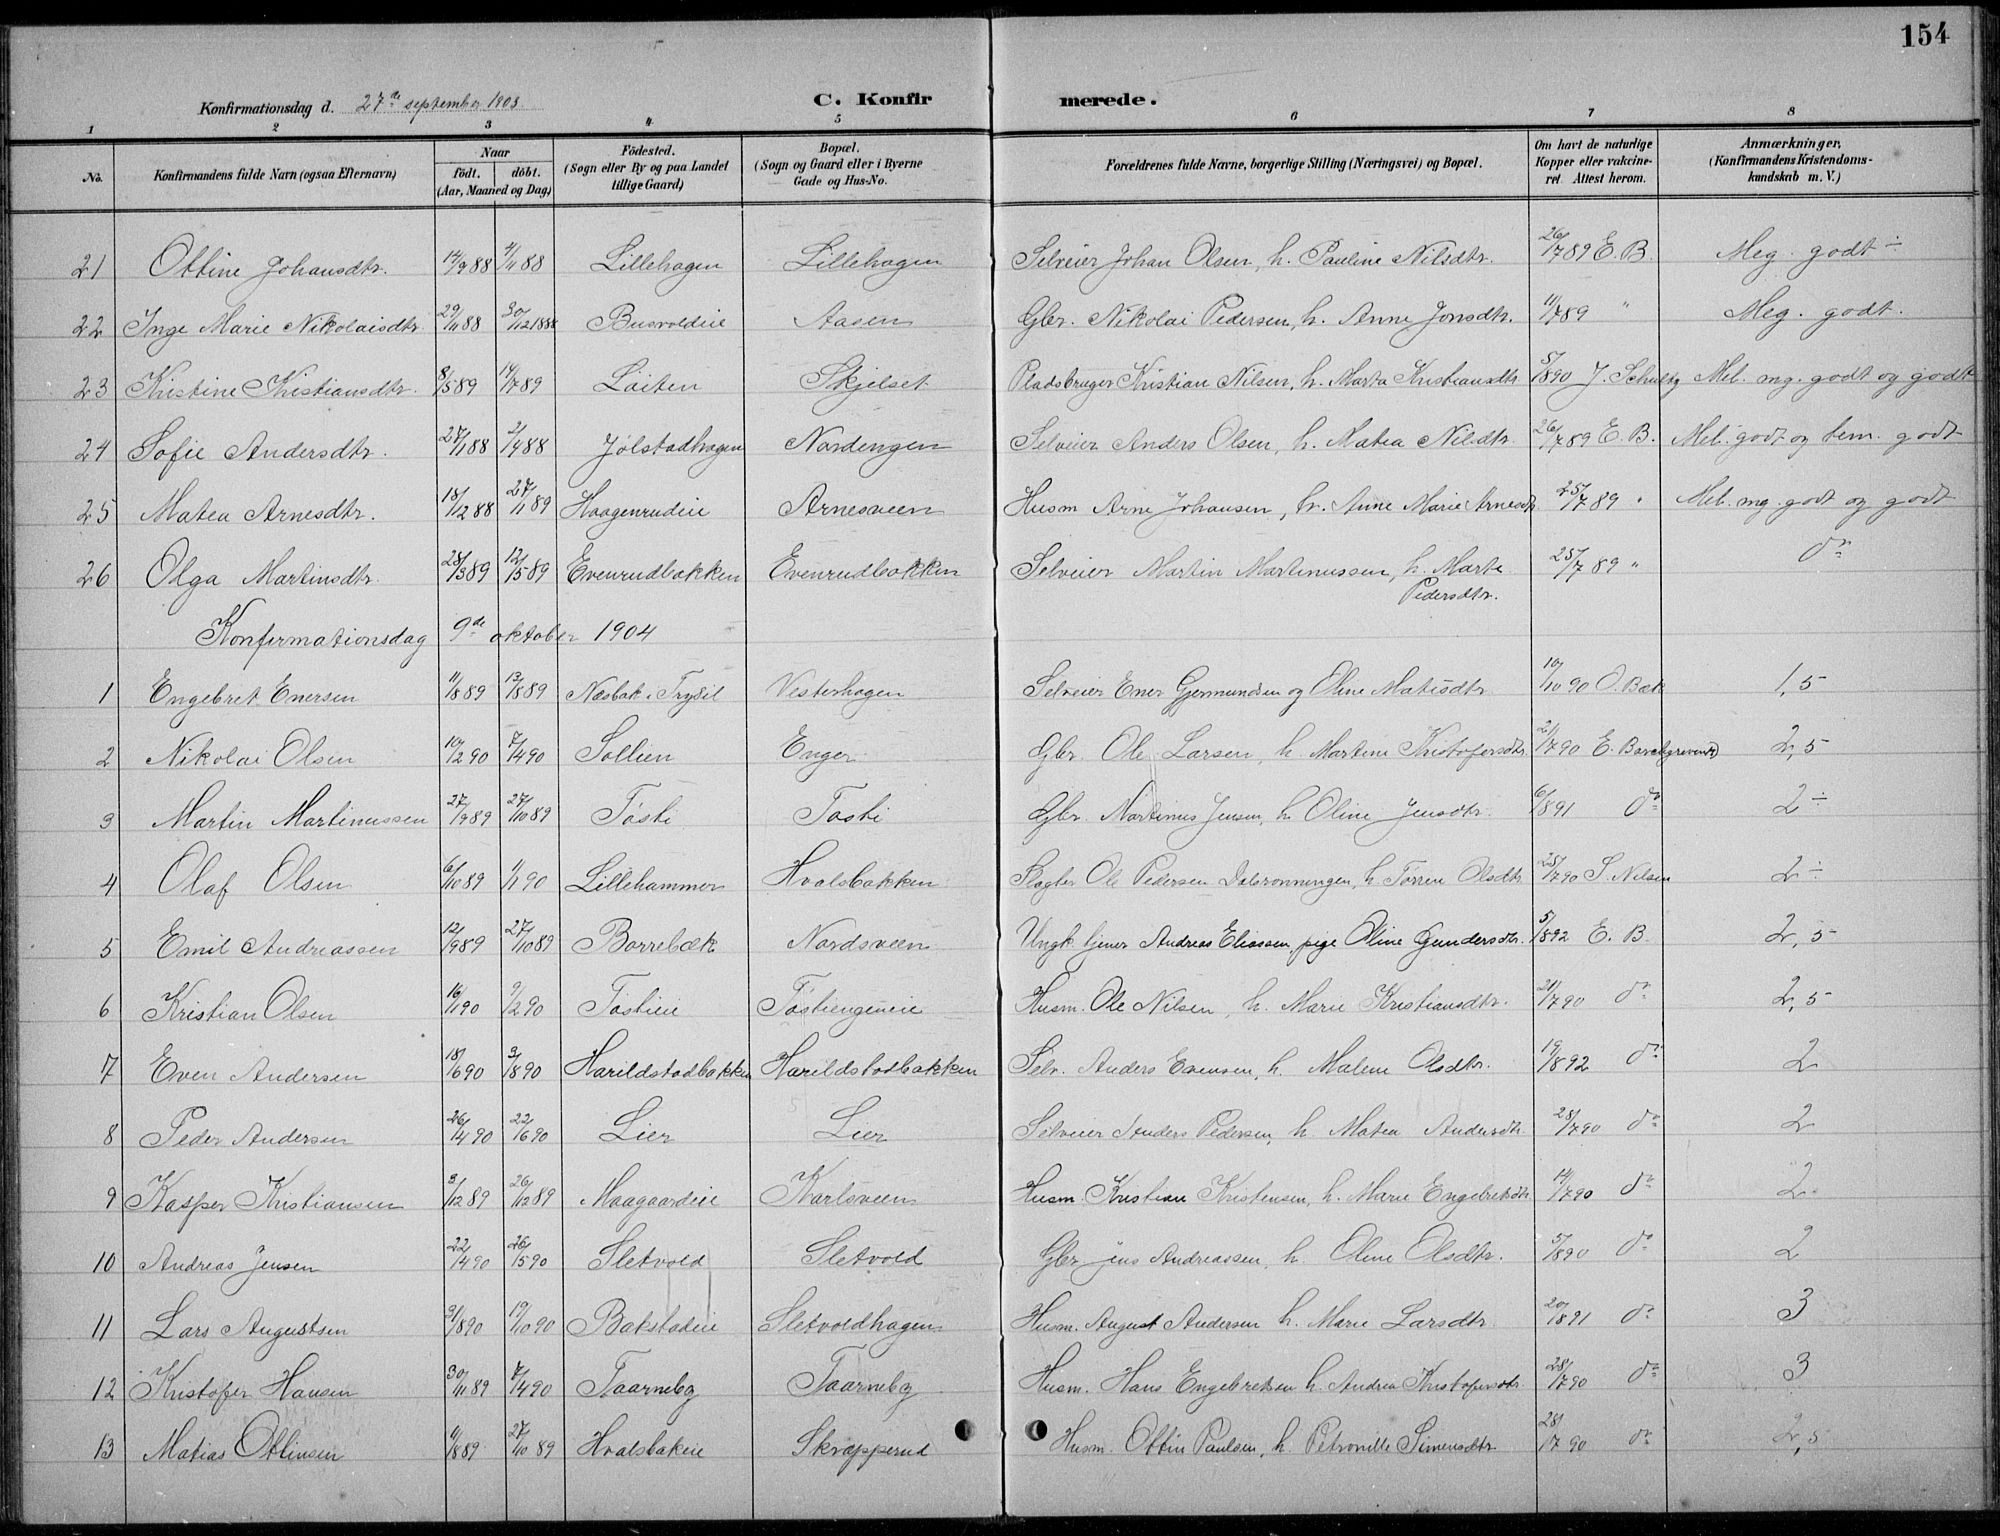 154
Konfirmationsdag d. 27de september 1903. C. Konfirmerede.
1 2 3 4 5 6 7 8
No. Konfirmandens fulde Navn (ogsaa Efternavn) Naar födt. döbt. (Aar, Maaned og Dag) Födested. (Sogn eller By og paa Landet tillige Gaard) Bopæl. (Sogn og Gaard eller i Byerne Gade og Hus-No. Forældrenes fulde Navne, borgerlige Stilling (Næringsvei) og Bopæl. Om havt de naturlige Kopper eller vakcineret. Attest herom. Anmærkninger, (Konfirmandens Kristendomskundskab m. V.)
21 Ottine Johansdtr. 14/9 88 4/11 88 Lillehagen Lillehagen Selveier Johan Olsen, h. Pauline Nilsdtr. 26/7 89 E. B. Meg. godt ÷
22 Inge Marie Nikolaisdtr 29/11 88 30/12 1888 Busvoldeie Aasen Gbr. Nikolai Pedersen, h. Anne Jonsdtr. 11/7 89 " Meg. godt.
23 Kristine Kristiansdtr. 8/5 89 14/7 89 Löiten Skjelset Pladsbruger Kristian Nilsen, h. Marta Kristiansdtr 5/8 90 J. Schultz Mel. mg. godt og godt
24 Sofie Andersdtr. 27/1 88 2/4 88 Jölstadhagen Nordengen Selveier Anders Olsen, h. Matea Nilsdtr. 26/7 89 E. B. Mel. godt og tem. godt
25 Matea Arnesdtr. 18/12 88 27/1 89 Haagenrudeie Arnesveen Husm Arne Johansen, h. Anne Marie Arnesdtr. 25/7 89 " Mel. mg. godt og godt
26 Olga Martinsdtr. 28/3 89 12/5 89 Evenrudbakken Evenrudbakken Selveier Martin Martinussen, h. Marte Pedersdtr. 25/7 89 " do
Konfirmationsdag 9de oktober 1904
1 Engebret Enersen 11/8 89 13/8 89 Næsbak i Trysil Vesterhagen Selveier Ener Gjermundsen og Oline Matisdtr 10/10 90 O. Bæk 1,5
2 Nikolai Olsen 10/2 90 7/4 90 Sollien Enger Gbr. Ole Larsen, h. Martine Kristofersdtr 21/7 90 E. 2,5
3 Martin Martinussen 27/9 89 27/10 89 Tösti Tosti Gbr. Martinus Jensen, h. Oline Jensdtr. 6/8 91 do 2 ÷
4 Olaf Olsen 6/10 89 1/1 90 Lillehammer Hvalsbakken Slagter Ole Pedersen Dalsrønningen, h. Torine Olsdtr 28/7 90 S. Nilsen 2 ÷
5 Emil Andreassen 12/9 89 27/10 89 Borrebæk Nordsveen Ungk. tjener Andreas Eliassen, pige Oline Gundersdtr. 5/8 92 E. B. 2,5
6 Kristian Olsen 16/1 90 9/2 90 Tostieie Töstiengeneie Husm. Ole Nilsen, h. Marie Kristiansdtr. 21/7 90 do 2,5
7 Even Andersen 18/6 90 3/8 90 Harildstadbakken Harildstadbakken Selv. Anders Evensen, h. Malene Olsdtr. 19/8 92 do 2
8 Peder Andersen 26/4 90 22/6 90 Lier Lier Selveier Anders Pedersen, h. Matea Andersdtr. 28/7 90 do 2
9 Kasper Kristiansen 3/12 89 26/12 89 Maagaardeie Karlsveen Husm. Kristian Kristensen, h. Marie Engebretsdtr 14/7 90 do 2
10 Andreas Jensen 22/4 90 26/5 90 Sletvold Sletvold Gbr. Jens Andreassen, h. Oline Olsdtr. 5/8 90 do 2
11 Lars Augustsen 31/8 90 19/10 90 Bakstadeie Sletvoldhagen Husm. August Andersen h. Marie Larsdtr. 20/8 91 do 3
12 Kristofer Hansen 30/11 89 7/4 90 Taarnebg Taarnebg Husm. Hans Engebretsen h. Andrea Kristofersdtr. 28/7 90 do 3
13 Matias Ottinsen 11/8 89 27/10 89 Hvalsbakeie Skræpperud Husm. Ottin Paulsen, h. Petronille Simensdtr 28/7 90 do 2,5